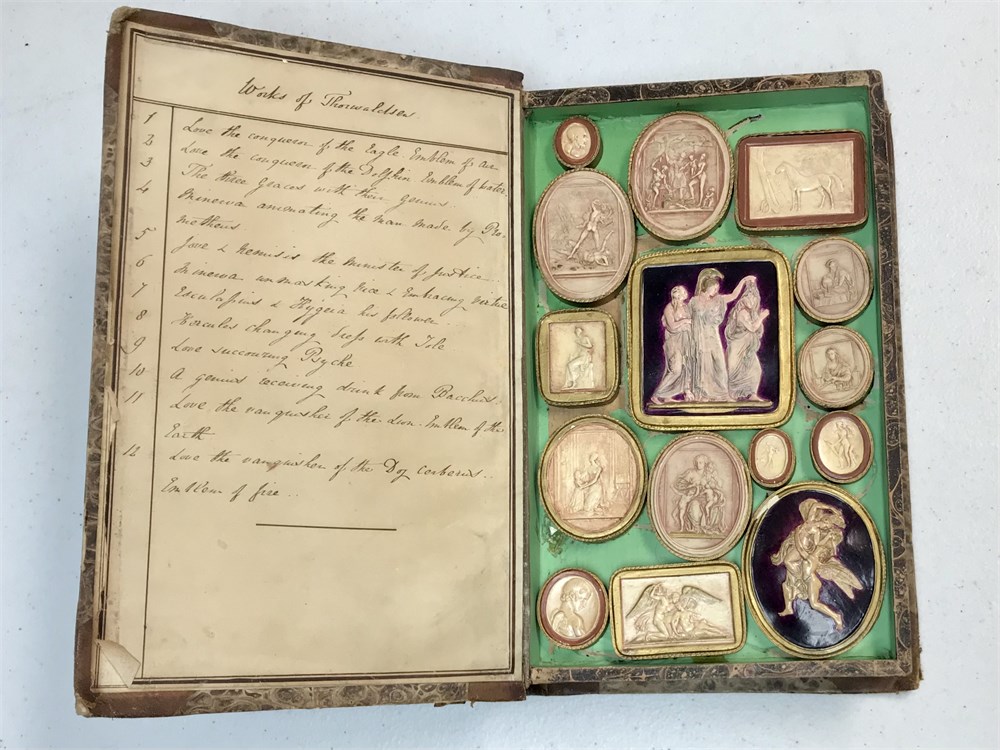 Works of Thorwaldsen
1 Love the conqueror of the Eagle Emblem of air
2 Love the conqueror of the Dolphin Emblem of water
3 The three Graces with their genius..
4 Minerva animating the man made by Pro-
metheus
5 Jove & Nemisis the Minister of Justice
6 Minerva unmasking Vice & Embracing Virtue
7 Esculapius & Hygeia his follower.
8 Hercules changing Sexes with Iole
9 Love succouring Psyche
10 A genius receiving drink from Bacchus.
11 Love the vanquisher of the Lion. Emblem of the
Earth
12 Love the vanquisher of the Dog cerberus..
Emblem of fire..